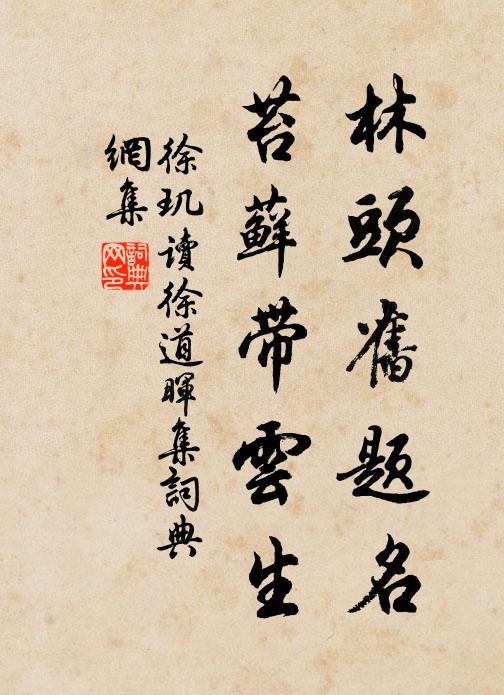 林頭舊題名
苔蘚帶雲生
徐玑讀徐道暉集詞典
網集
詞典
网印